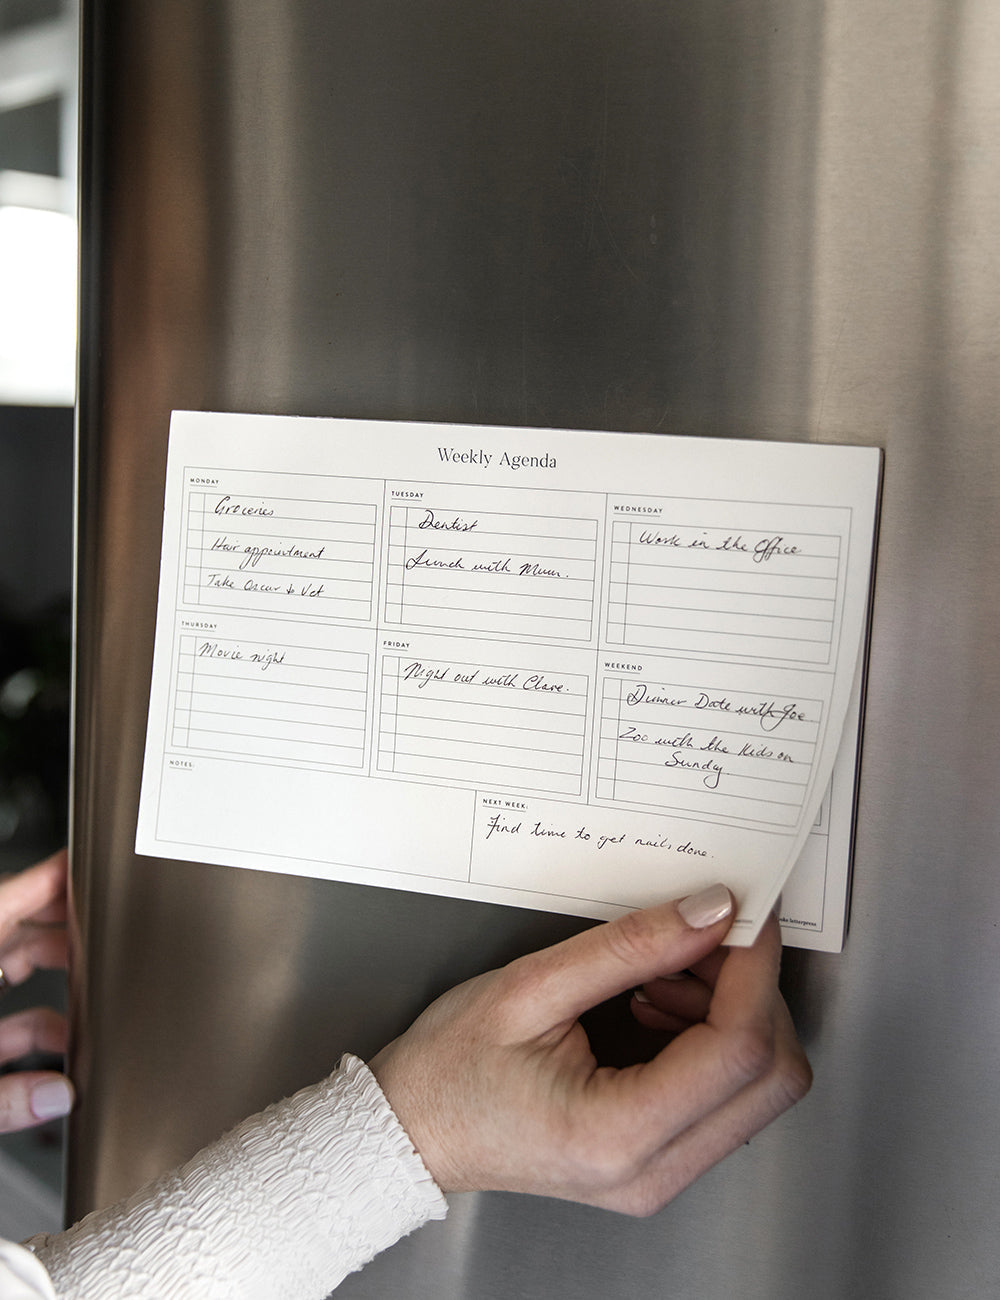 Weekly Agenda
MONDAY
Groceries
Hair appointment
Take Oscar to Vet
TUESDAY
Dentist
Lunch with Mum.
WEDNESDAY
Work in the Office
THURSDAY
Movie night
FRIDAY
Night out with Clare.
WEEKEND
Dinner Date with Joe
Zoo with the Kids on
Sunday
NOTES:
NEXT WEEK:
Find time to get nails done.
letterpress